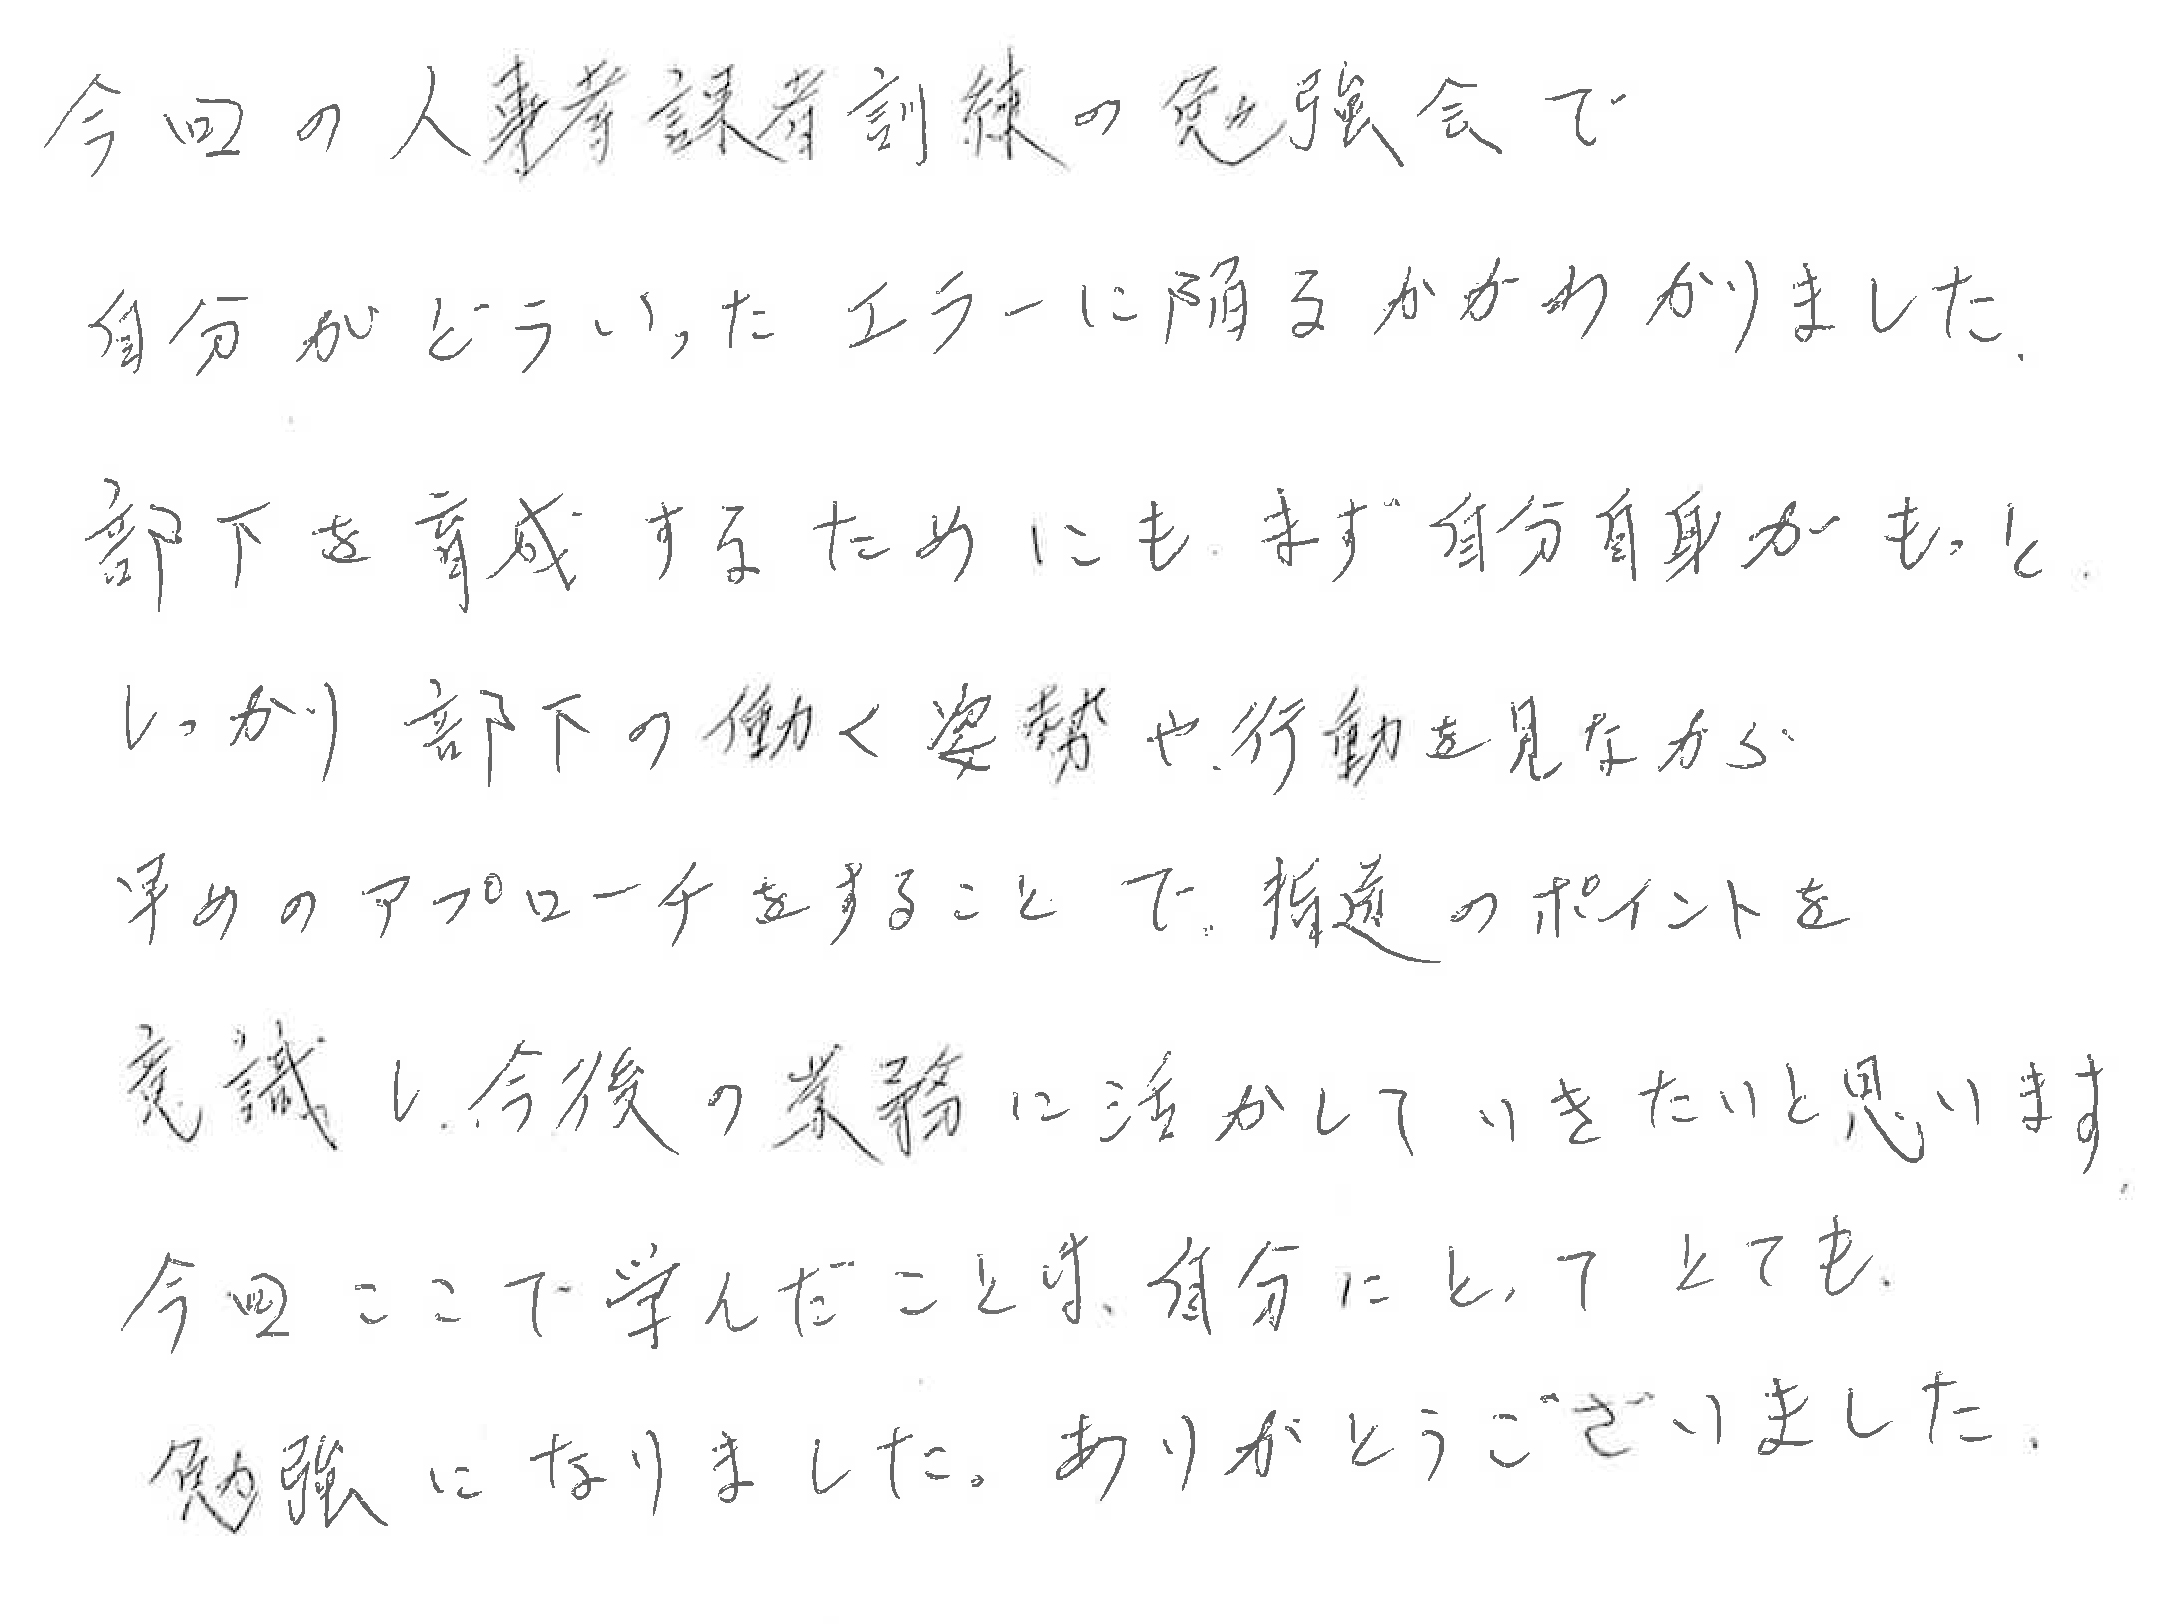 今回の人事考課者訓練の勉強会で
自分がどういったエラーに陥るかがわかりました。
部下を育成するためにも、まず自分自身がもっと、
しっかり部下の働く姿勢や、行動を見ながら
早めのアプローチをすることで、指導のポイントを
意識し、今後の業務に活かしていきたいと思います。
今回ここで学んだことは、自分にとってとても、
勉強になりました。ありがとうございました。